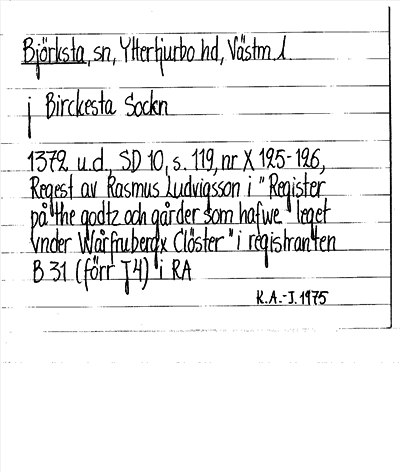 Björksta, sn, Yttertjurbo hd, Västm. l.
j Birckesta Sockn
1372 u.d., SD 10, s. 119, nr X 125-126,
Regest av Rasmus Ludvigsson i "Register
på the godtz och gårder som hafwe leget
vnder Wårfruberdx Clöster" i registranten
B 31 (förr J 4) i RA
K.A.-J. 1975